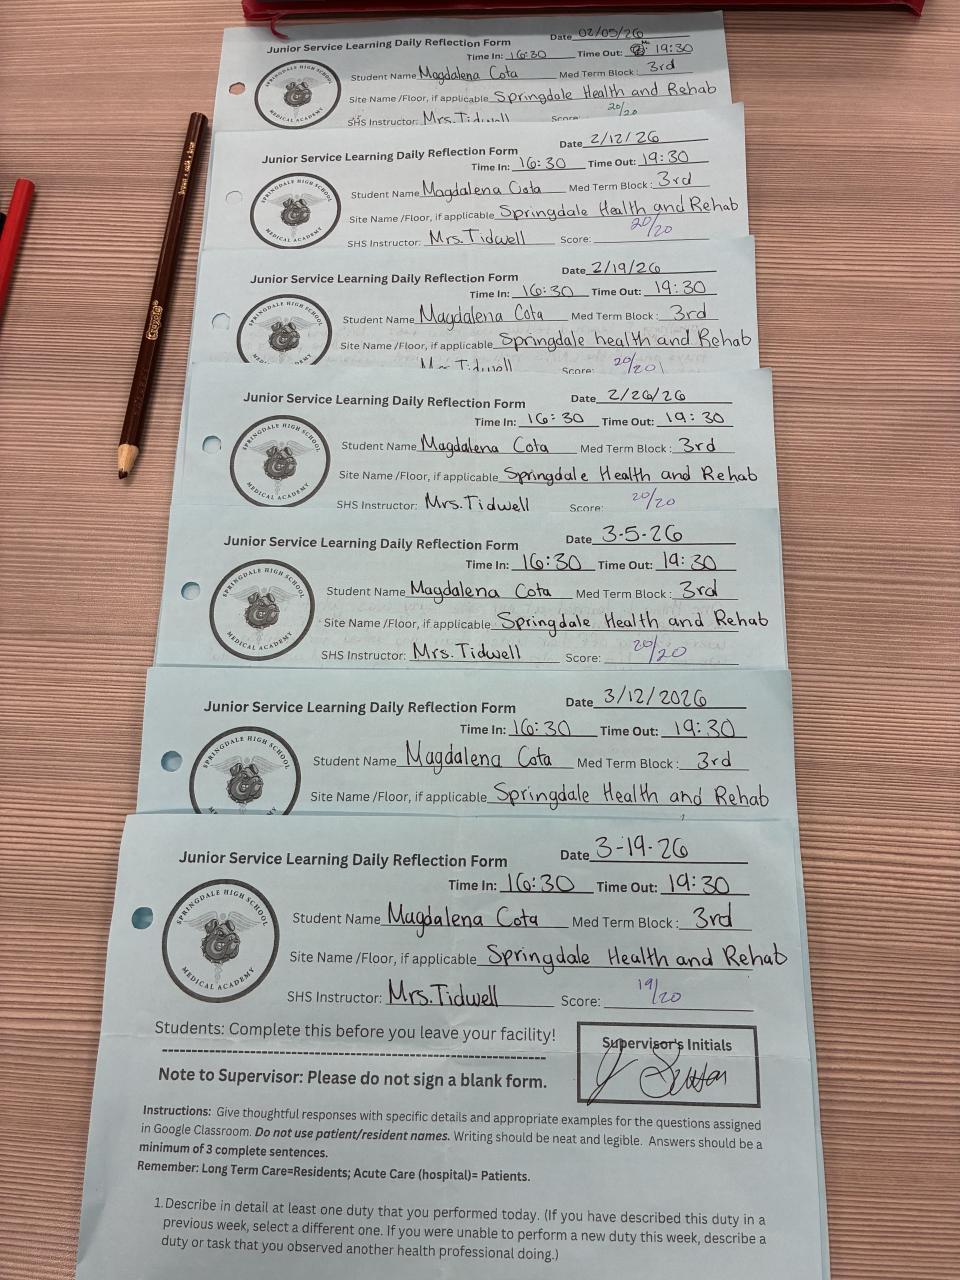 Junior Service Learning Daily Reflection Form Date 02/05/26
Time In: 16:30 Time Out: 19:30
Student Name Magdalena Cota Med Term Block: 3rd
Site Name /Floor, if applicable Springdale Health and Rehab
20/20
SHS Instructor: Mrs. Tidwell Score:
SPRINGDALE HIGH SCHOOL
MEDICAL ACADEMY
Junior Service Learning Daily Reflection Form Date 2/12/26
Time In: 16:30 Time Out: 19:30
Student Name Magdalena Cota Med Term Block: 3rd
Site Name /Floor, if applicable Springdale Health and Rehab
SHS Instructor: Mrs. Tidwell Score: 20/20
SPRINGDALE HIGH SCHOOL
MEDICAL ACADEMY
Junior Service Learning Daily Reflection Form Date 2/19/26
Time In: 16:30 Time Out: 19:30
Student Name Magdalena Cota Med Term Block: 3rd
Site Name /Floor, if applicable Springdale health and Rehab
Mrs. Tidwell Score: 20/20
SPRINGDALE HIGH SCHOOL
Junior Service Learning Daily Reflection Form Date 2/26/26
Time In: 16:30 Time Out: 19:30
Student Name Magdalena Cota Med Term Block: 3rd
Site Name /Floor, if applicable Springdale Health and Rehab
SHS Instructor: Mrs. Tidwell Score: 20/20
SPRINGDALE HIGH SCHOOL
MEDICAL ACADEMY
Junior Service Learning Daily Reflection Form Date 3-5-26
Time In: 16:30 Time Out: 19:30
Student Name Magdalena Cota Med Term Block: 3rd
Site Name /Floor, if applicable Springdale Health and Rehab
SHS Instructor: Mrs. Tidwell Score: 20/20
SPRINGDALE HIGH SCHOOL
MEDICAL ACADEMY
Junior Service Learning Daily Reflection Form Date 3/12/2026
Time In: 16:30 Time Out: 19:30
Student Name Magdalena Cota Med Term Block: 3rd
Site Name /Floor, if applicable Springdale Health and Rehab
SPRINGDALE HIGH SCHOOL
Junior Service Learning Daily Reflection Form Date 3-19-26
Time In: 16:30 Time Out: 19:30
Student Name Magdalena Cota Med Term Block: 3rd
Site Name /Floor, if applicable Springdale Health and Rehab
SHS Instructor: Mrs. Tidwell Score: 19/20
SPRINGDALE HIGH SCHOOL
MEDICAL ACADEMY
Students: Complete this before you leave your facility!
Supervisor's Initials
Note to Supervisor: Please do not sign a blank form.
Instructions: Give thoughtful responses with specific details and appropriate examples for the questions assigned
in Google Classroom. Do not use patient/resident names. Writing should be neat and legible. Answers should be a
minimum of 3 complete sentences.
Remember: Long Term Care=Residents; Acute Care (hospital)= Patients.
1. Describe in detail at least one duty that you performed today. (If you have described this duty in a
previous week, select a different one. If you were unable to perform a new duty this week, describe a
duty or task that you observed another health professional doing.)
Crayola